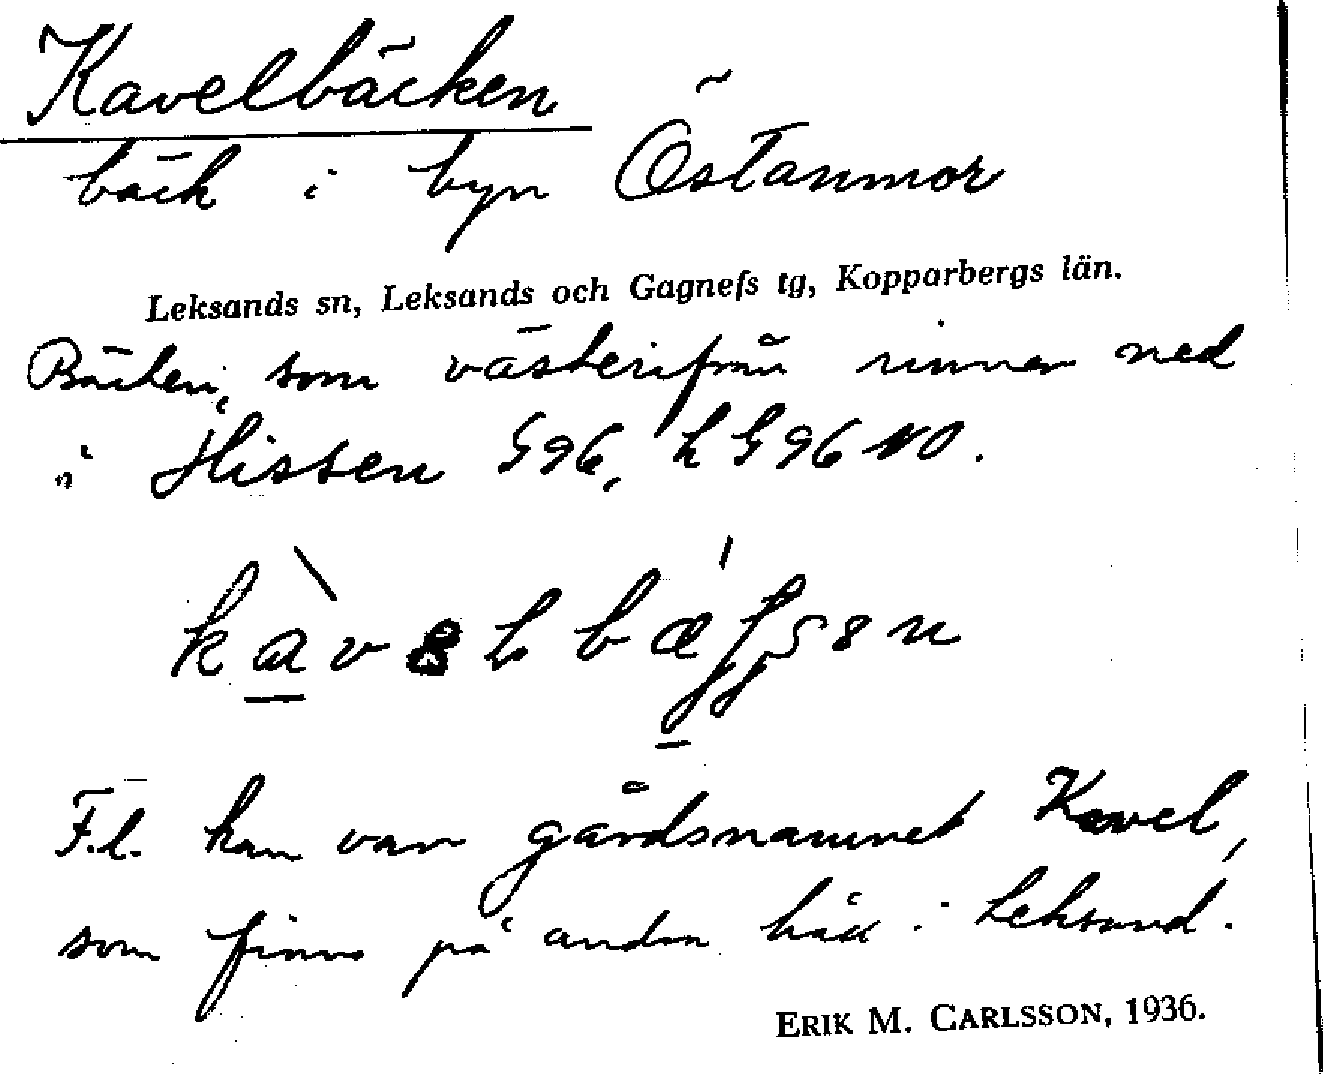 Kavelbäcken
bäck i byn Östanmor
Leksands sn, Leksands och Gagnefs tg, Kopparbergs län.
Bäcken, som västerifrån rinner ned
i Hissen G96, h G96 NO.
F.l. kan vara gårdsnamnet Kavel,
som finns på andra håll i Leksand.
ERIK M. CARLSSON, 1936.